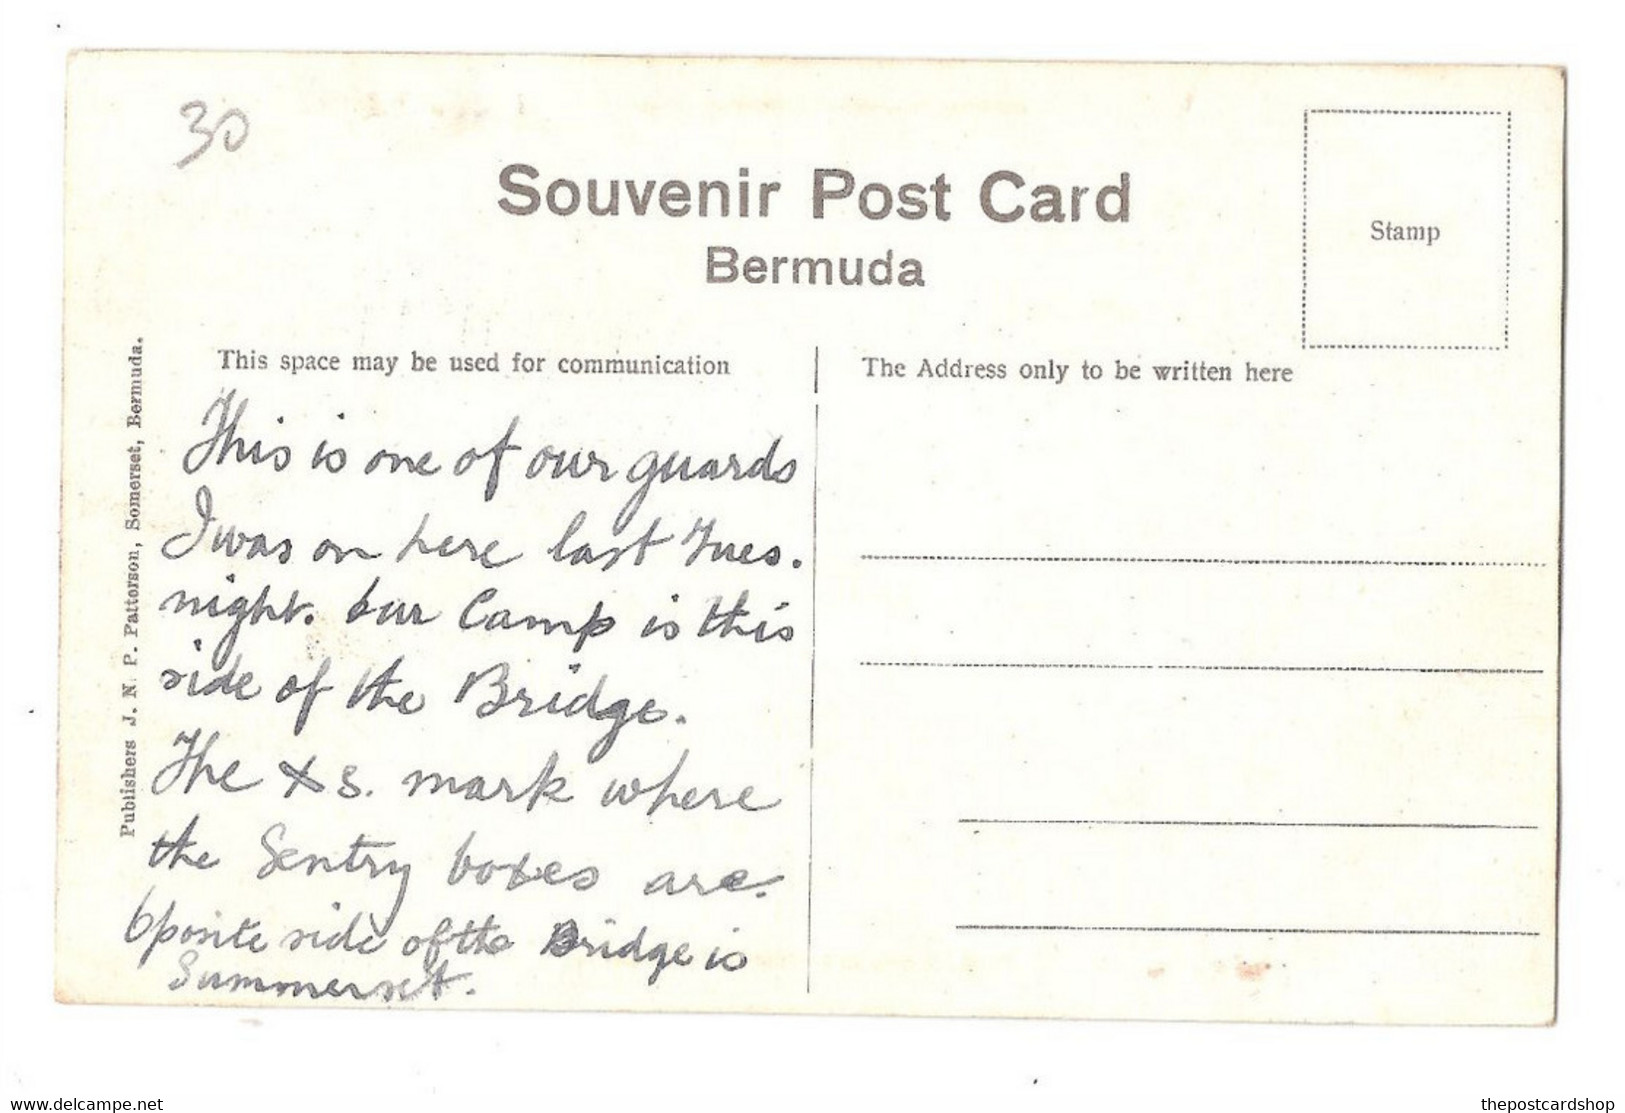 30
Souvenir Post Card
Bermuda
Stamp
This space may be used for communication
The Address only to be written here
Publishers J. N. P. Patterson, Somerset, Bermuda.
This is one of our guards
I was on here last Tues.
night. Our Camp is this
side of the Bridge.
The x s. mark where
the Sentry boxes are.
Oposite side of the Bridge is
Summerset.
www.delcampe.net
thepostcardshop